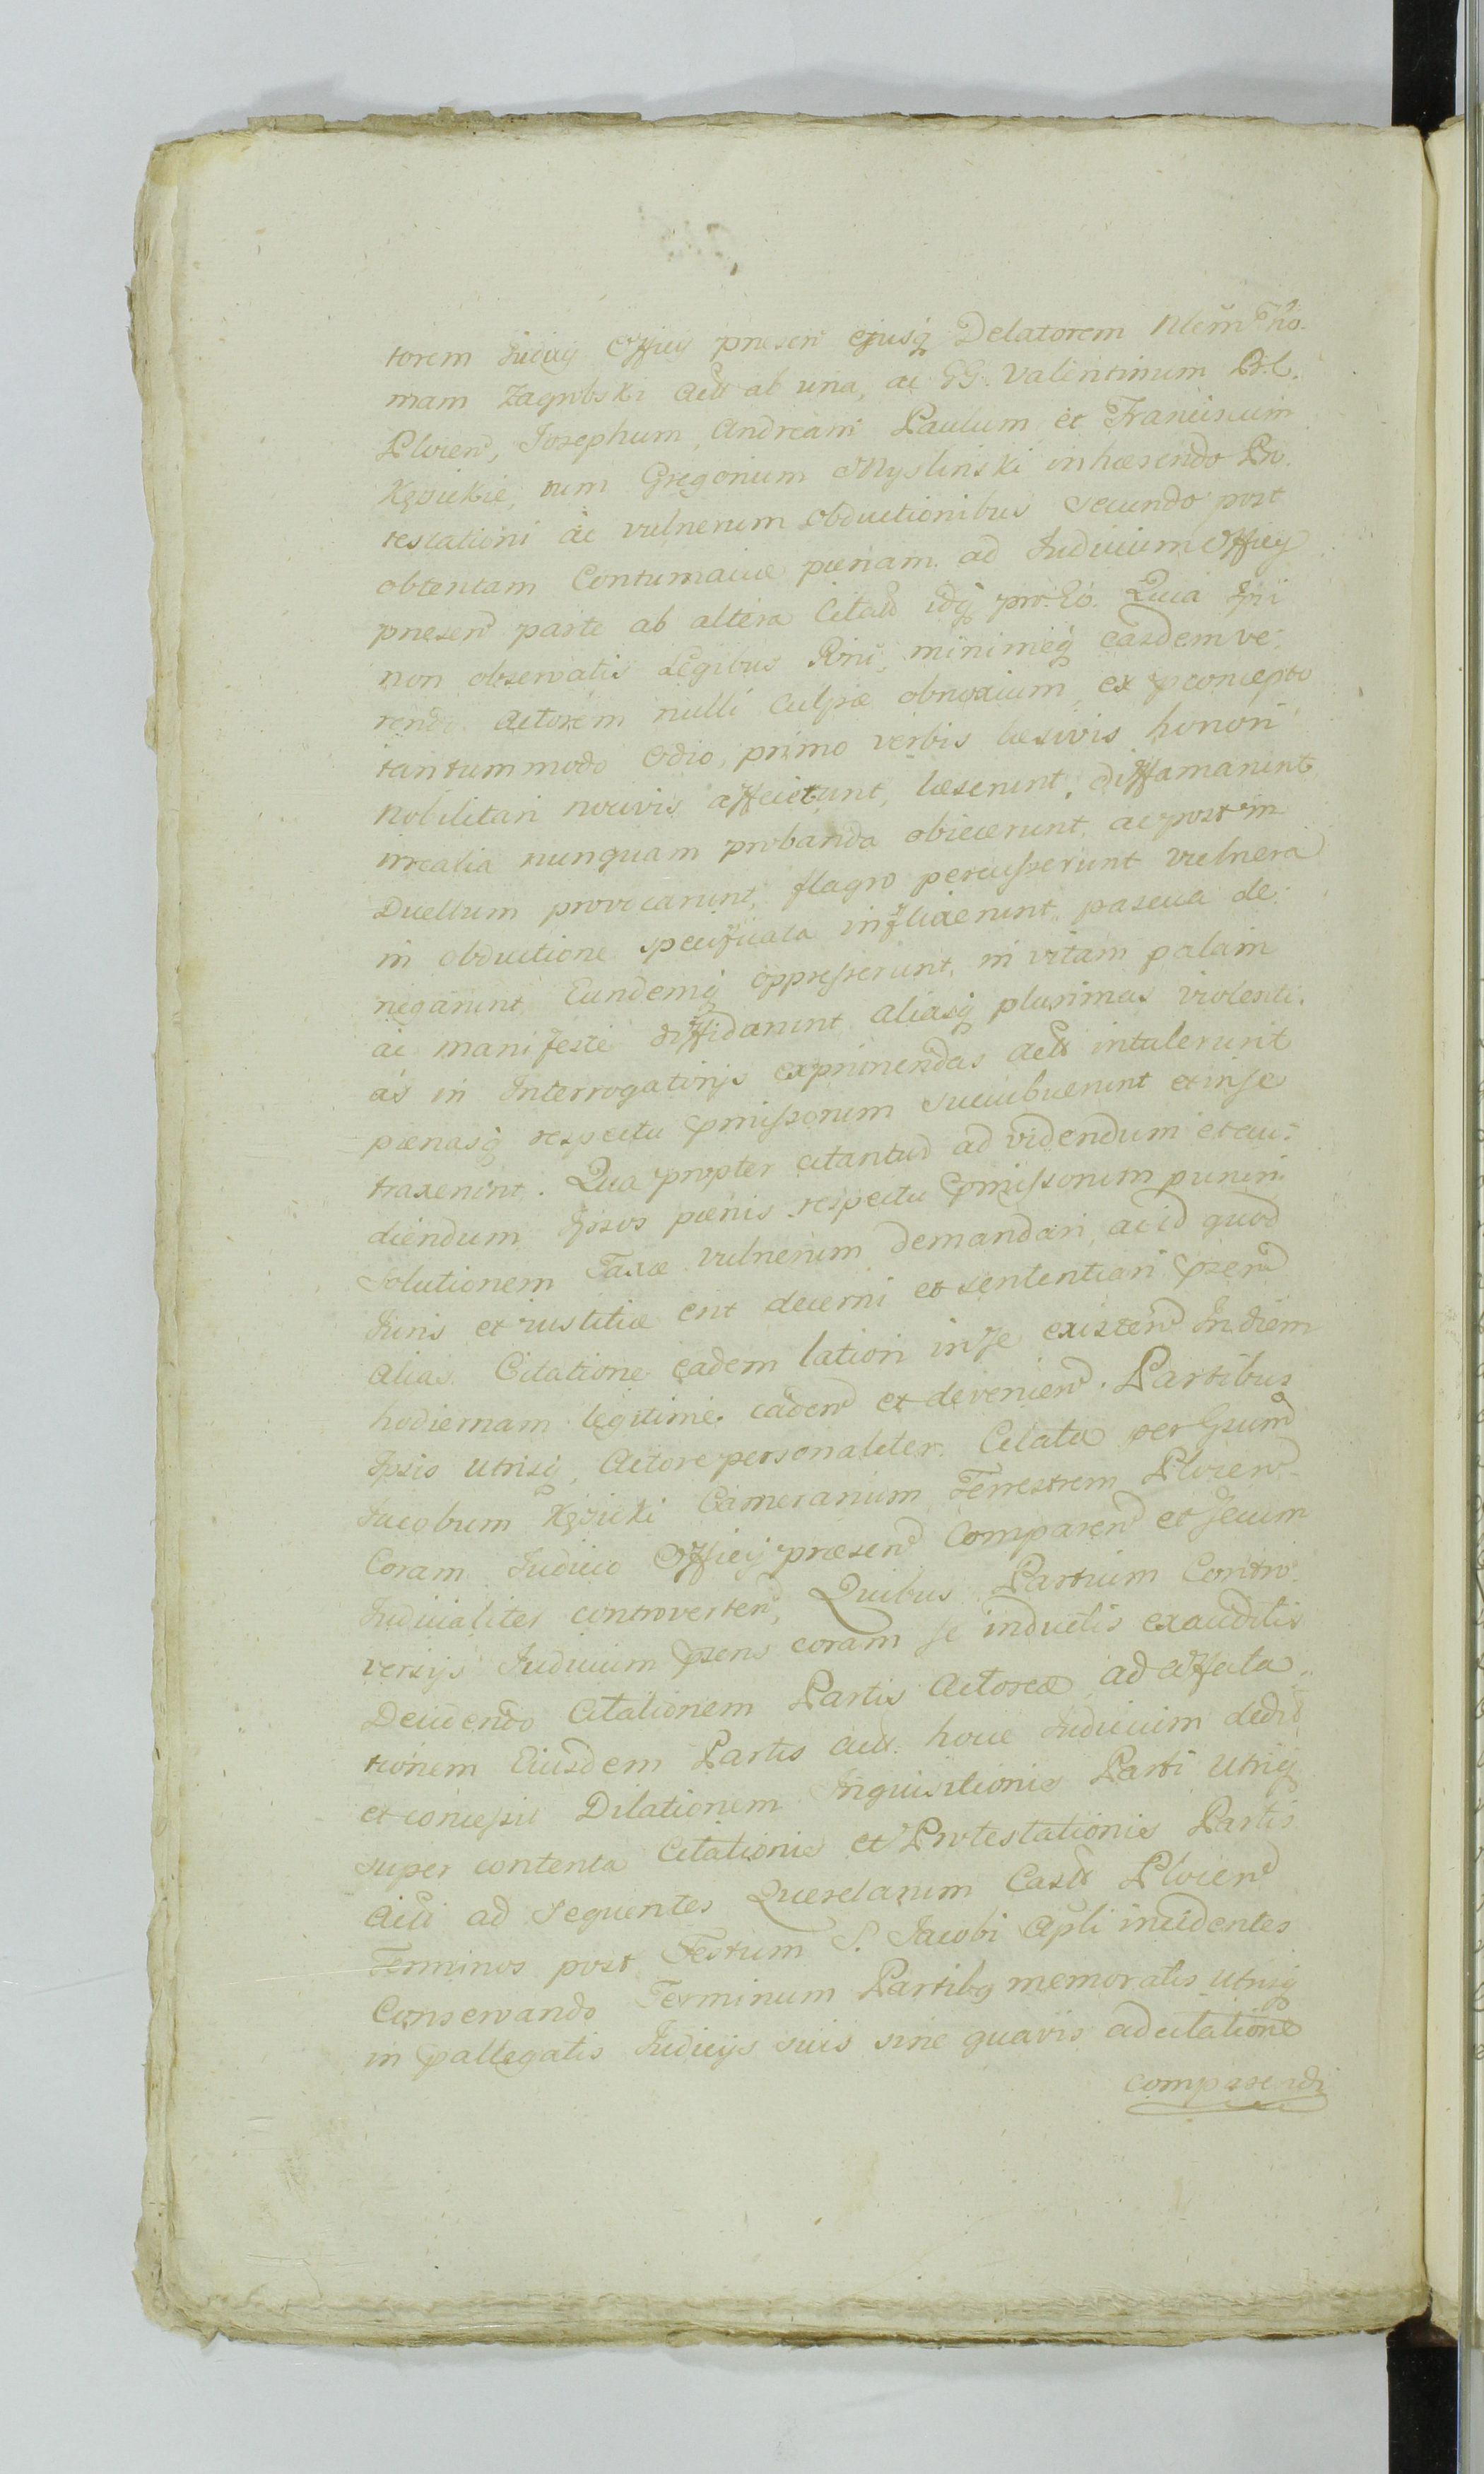 torem Iudicij Officij presen ejusq Delatorem Nlem Tho-
mam Zagrobski Act ab una, ac GG. Valentinum
Plocen, Josephum, Andream Paulum et Franciscum
Kęsickie, tum Gregorium Myslinski inhærendo Pro-
testationi ac vulnerum obductionibus secundo post
obtentam Contumaciæ pænam ad Iudicium Officij
presen parte ab altera Citatt idq pro Eo. Quia Ipsi
non observatis Legibus Rni, minimeq easdem ve-
rendo Actorem nulli Culpæ obnoxium, ex pconcepto
tantummodo Odio, primo verbis læsivis honori
Nobilitari nocivis affecerunt, læserunt, diffamarunt
irrealia nunquam probanda obiecerunt, ac post in
Duellum provocarunt, flagro percusserunt vulnera
in obductione specificata inflixerunt, pascua de-
negarunt, Eundemq oppresserunt, in vitam palam
ac manifeste diffidarunt aliasq plurimas violenti-
as in Interrogatorijs exprimendas Act intulerunt
pænasq respectu pmissorum succubuerunt et in se
traxerunt. Qua propter citantur ad videndum et au-
diendum Ipsos pænis respectu pmissorum puniri
Solutionem Taxæ vulnerum demandari, ac id quod
Iuris et iustitiæ erit decerni et sententiari psen
Alias Citatione eadem lationi in se existen In diem
hodiernam legitime caden et devenien. Partibus
Ipsis utrisq, Actore personaliter. Citata per Gsum
Jacobum Kęsicki Camerarium Terrestrem Plocen
Coram Iudicio Officij præsen Comparen et secum
Iudicialiter controverten, Quibus Partium Contro-
versijs Iudicium psens coram se inductis exauditis
Decidendo Citationem Partis Actoreæ ad affecta-
tionem Eiusdem Partis Act. hocce Iudicium dedit
et concessit Dilationem Inquisitionis Parti Utriq
super contenta Citationis et Protestationis Partis
Acti ad sequentes Querelarum Castr Plocen
Terminos post Festum S. Jacobi Apli incidentes
Conservando Terminum Partibq memoratis utrisq
in pallegatis Iudicijs suis sine quavis adcitatione
comparendi